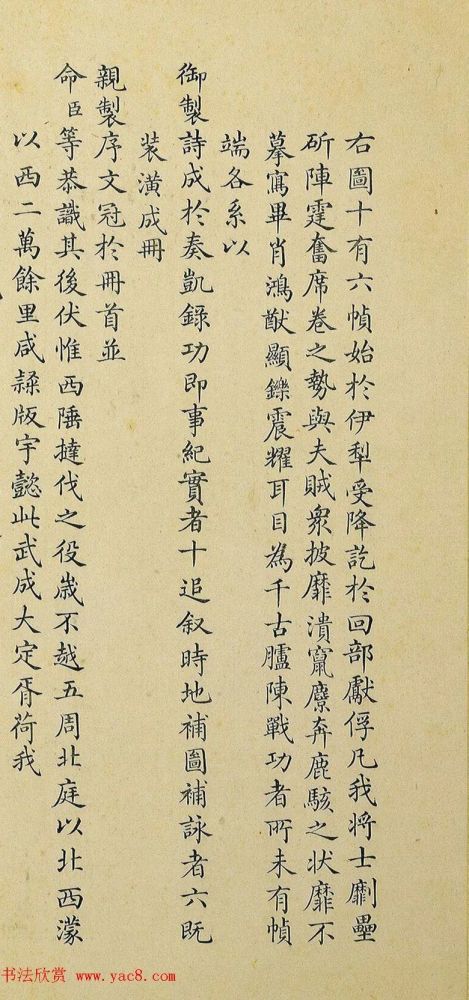 右圖十有六幀始於伊犁受降訖於回部獻俘凡我將士劘壘
斫陣霆奮席卷之勢與夫賊衆披靡潰竄麇奔鹿駭之狀靡不
摹寫畢肖鴻猷顯鑠震耀耳目為千古臚陳戰功者所未有幀
端各系以
御製詩成於奏凱錄功即事紀實者十追叙時地補圖補詠者六既
装潢成冊
親製序文冠於冊首並
命臣等恭識其後伏惟西陲撻伐之役嵗不越五周北庭以北西濛
以西二萬餘里咸隸版宇懿此武成大定胥荷我
书法欣赏 www.yac8.com